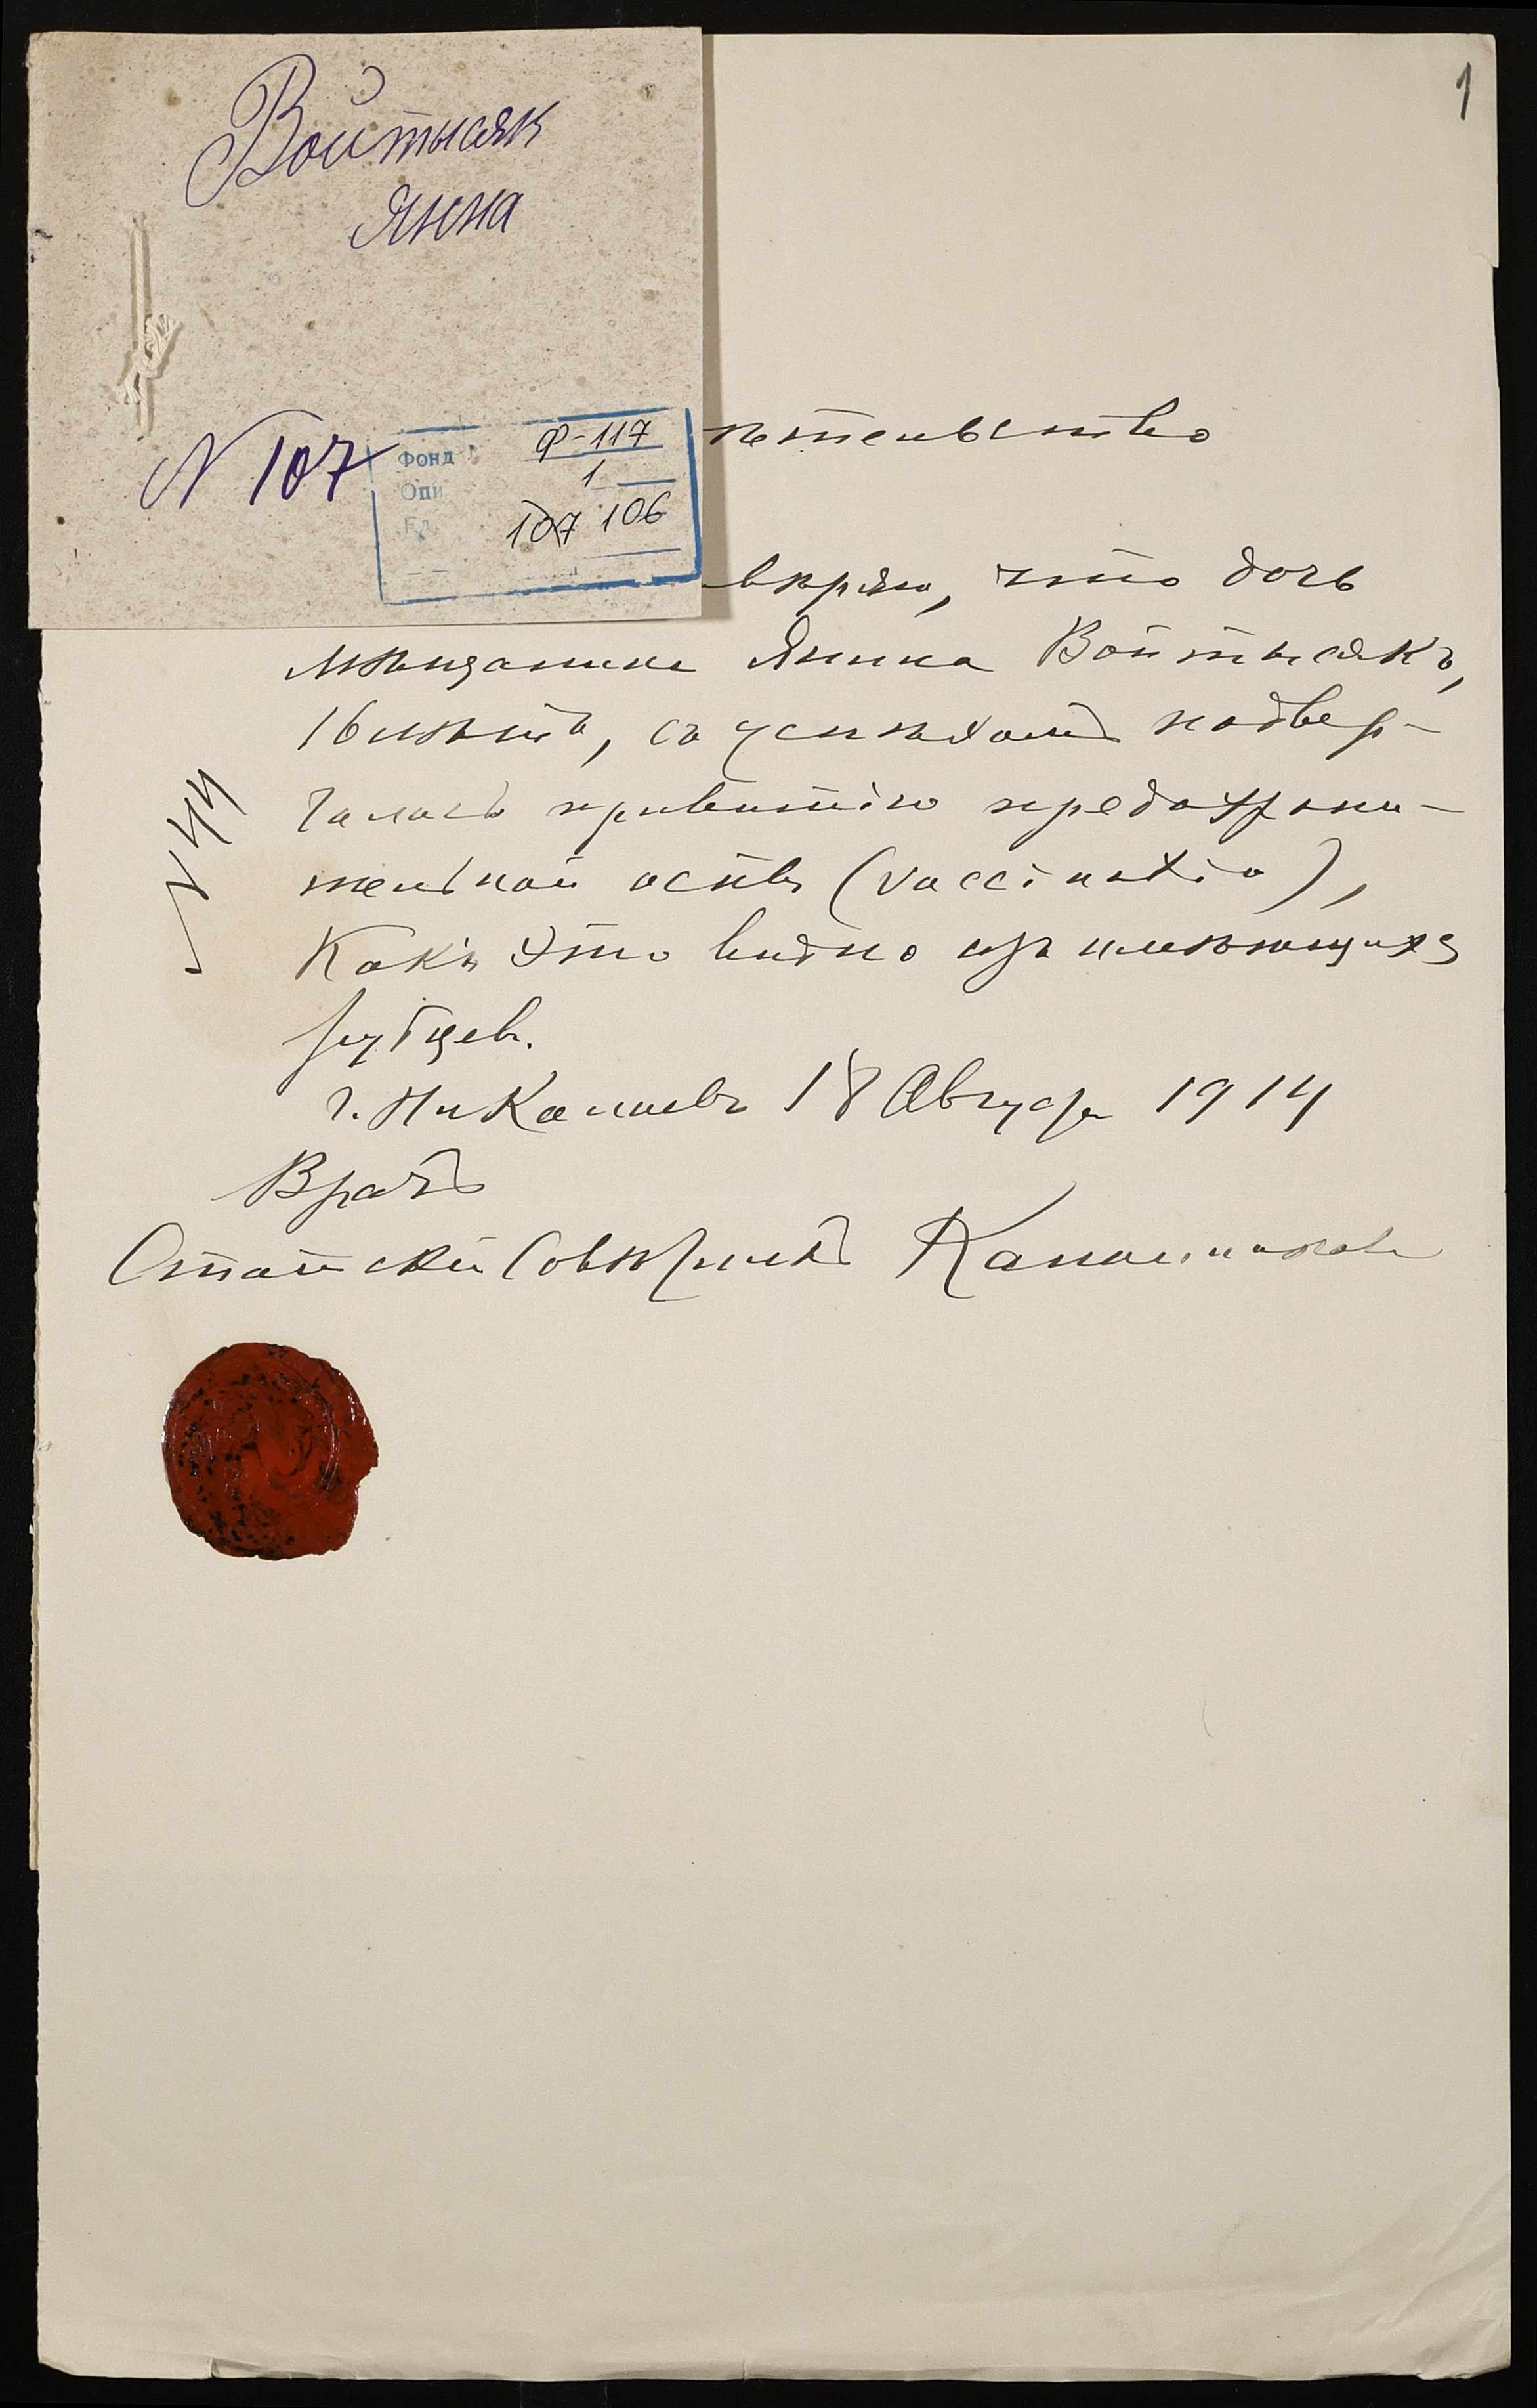 1
Войтысяк
Янна
N 107
Фонд Ф-117
Опи 1
Ед. 107 106
ѣтельство
вѣряю, что дочь
мѣщанина Янина Войтысякъ,
16 лѣтъ, съ успѣхомъ подвер-
галась привитію предохрани-
тельной оспы (vaccinatio),
Какъ Это видно изъ имѣющихся
рубцевъ.
г. Николаевъ 18 Августа 1914
Врачъ
Статскій Совѣтникъ